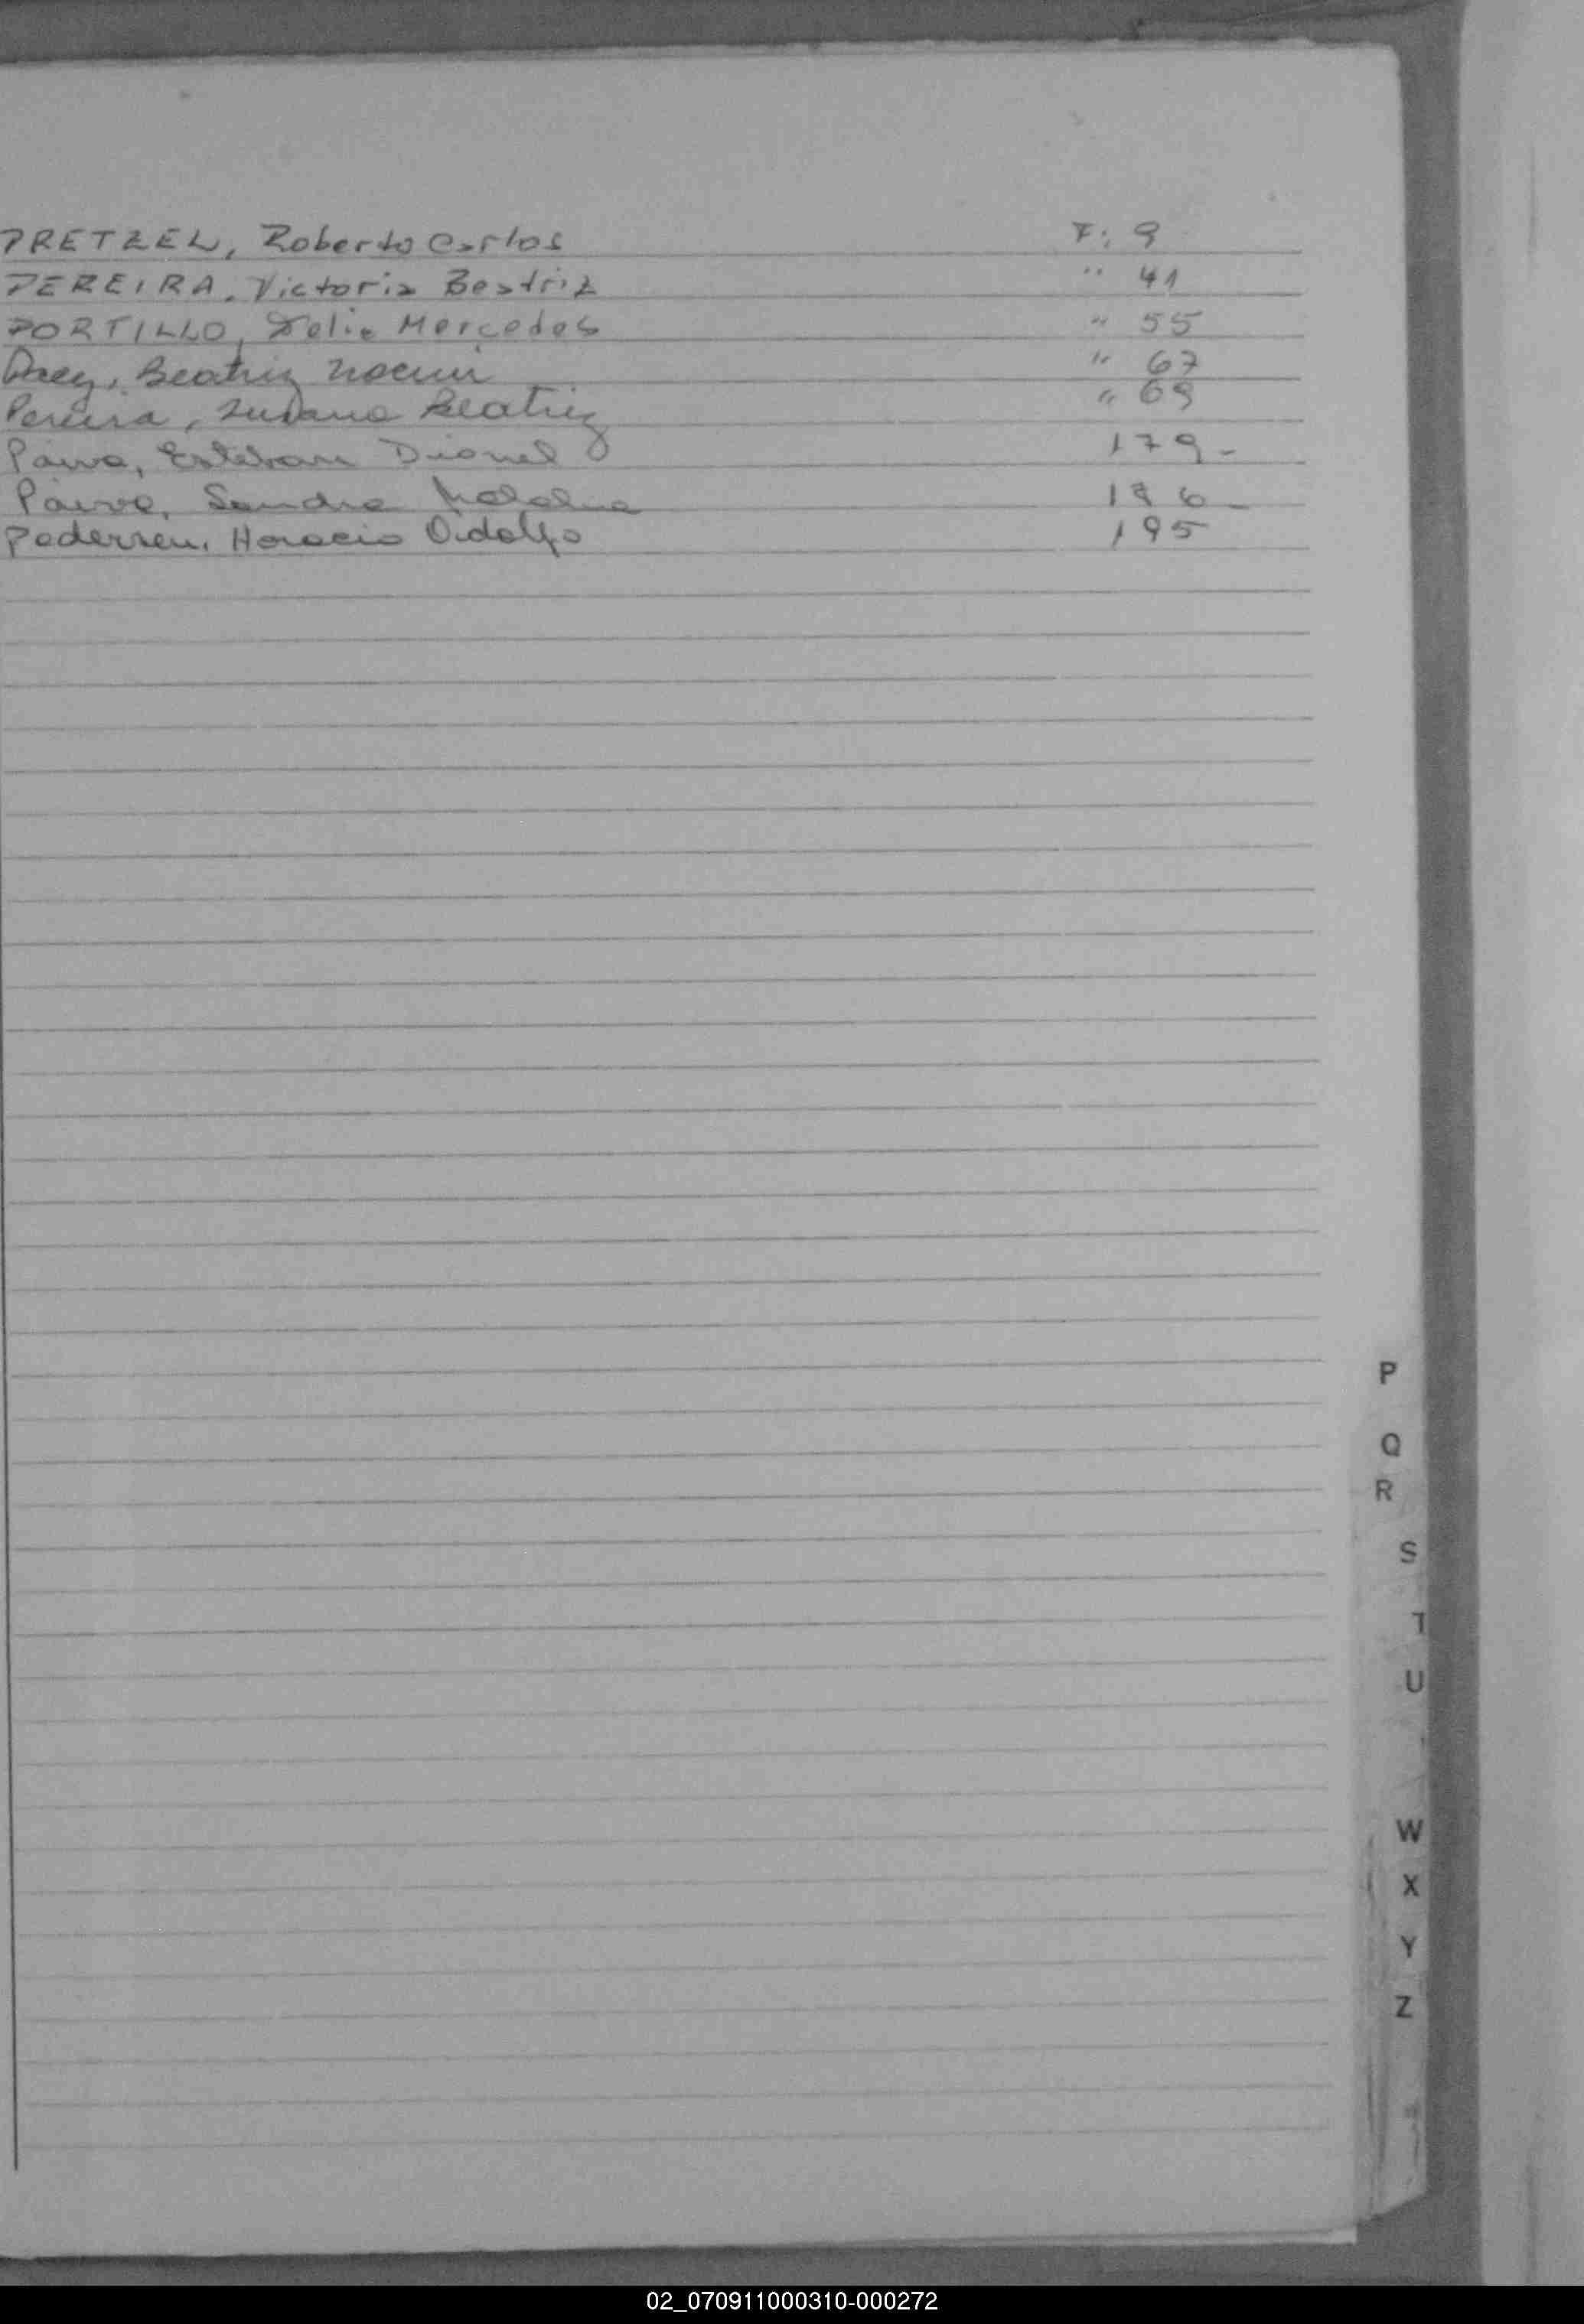 PRETZEL, Roberto Carlos F: 9
PEREIRA, Victoria Beatriz " 41
PORTILLO, Delia Mercedes " 55
Beatriz Noemi " 67
Pereira, Susana Beatriz " 69
Paiva, Esteban Dionel 179-
Paiva, Sandra 186-
Pedersen, Horacio Odolfo 195
P
Q
R
S
T
U
W
X
Y
Z
02_070911000310-000272